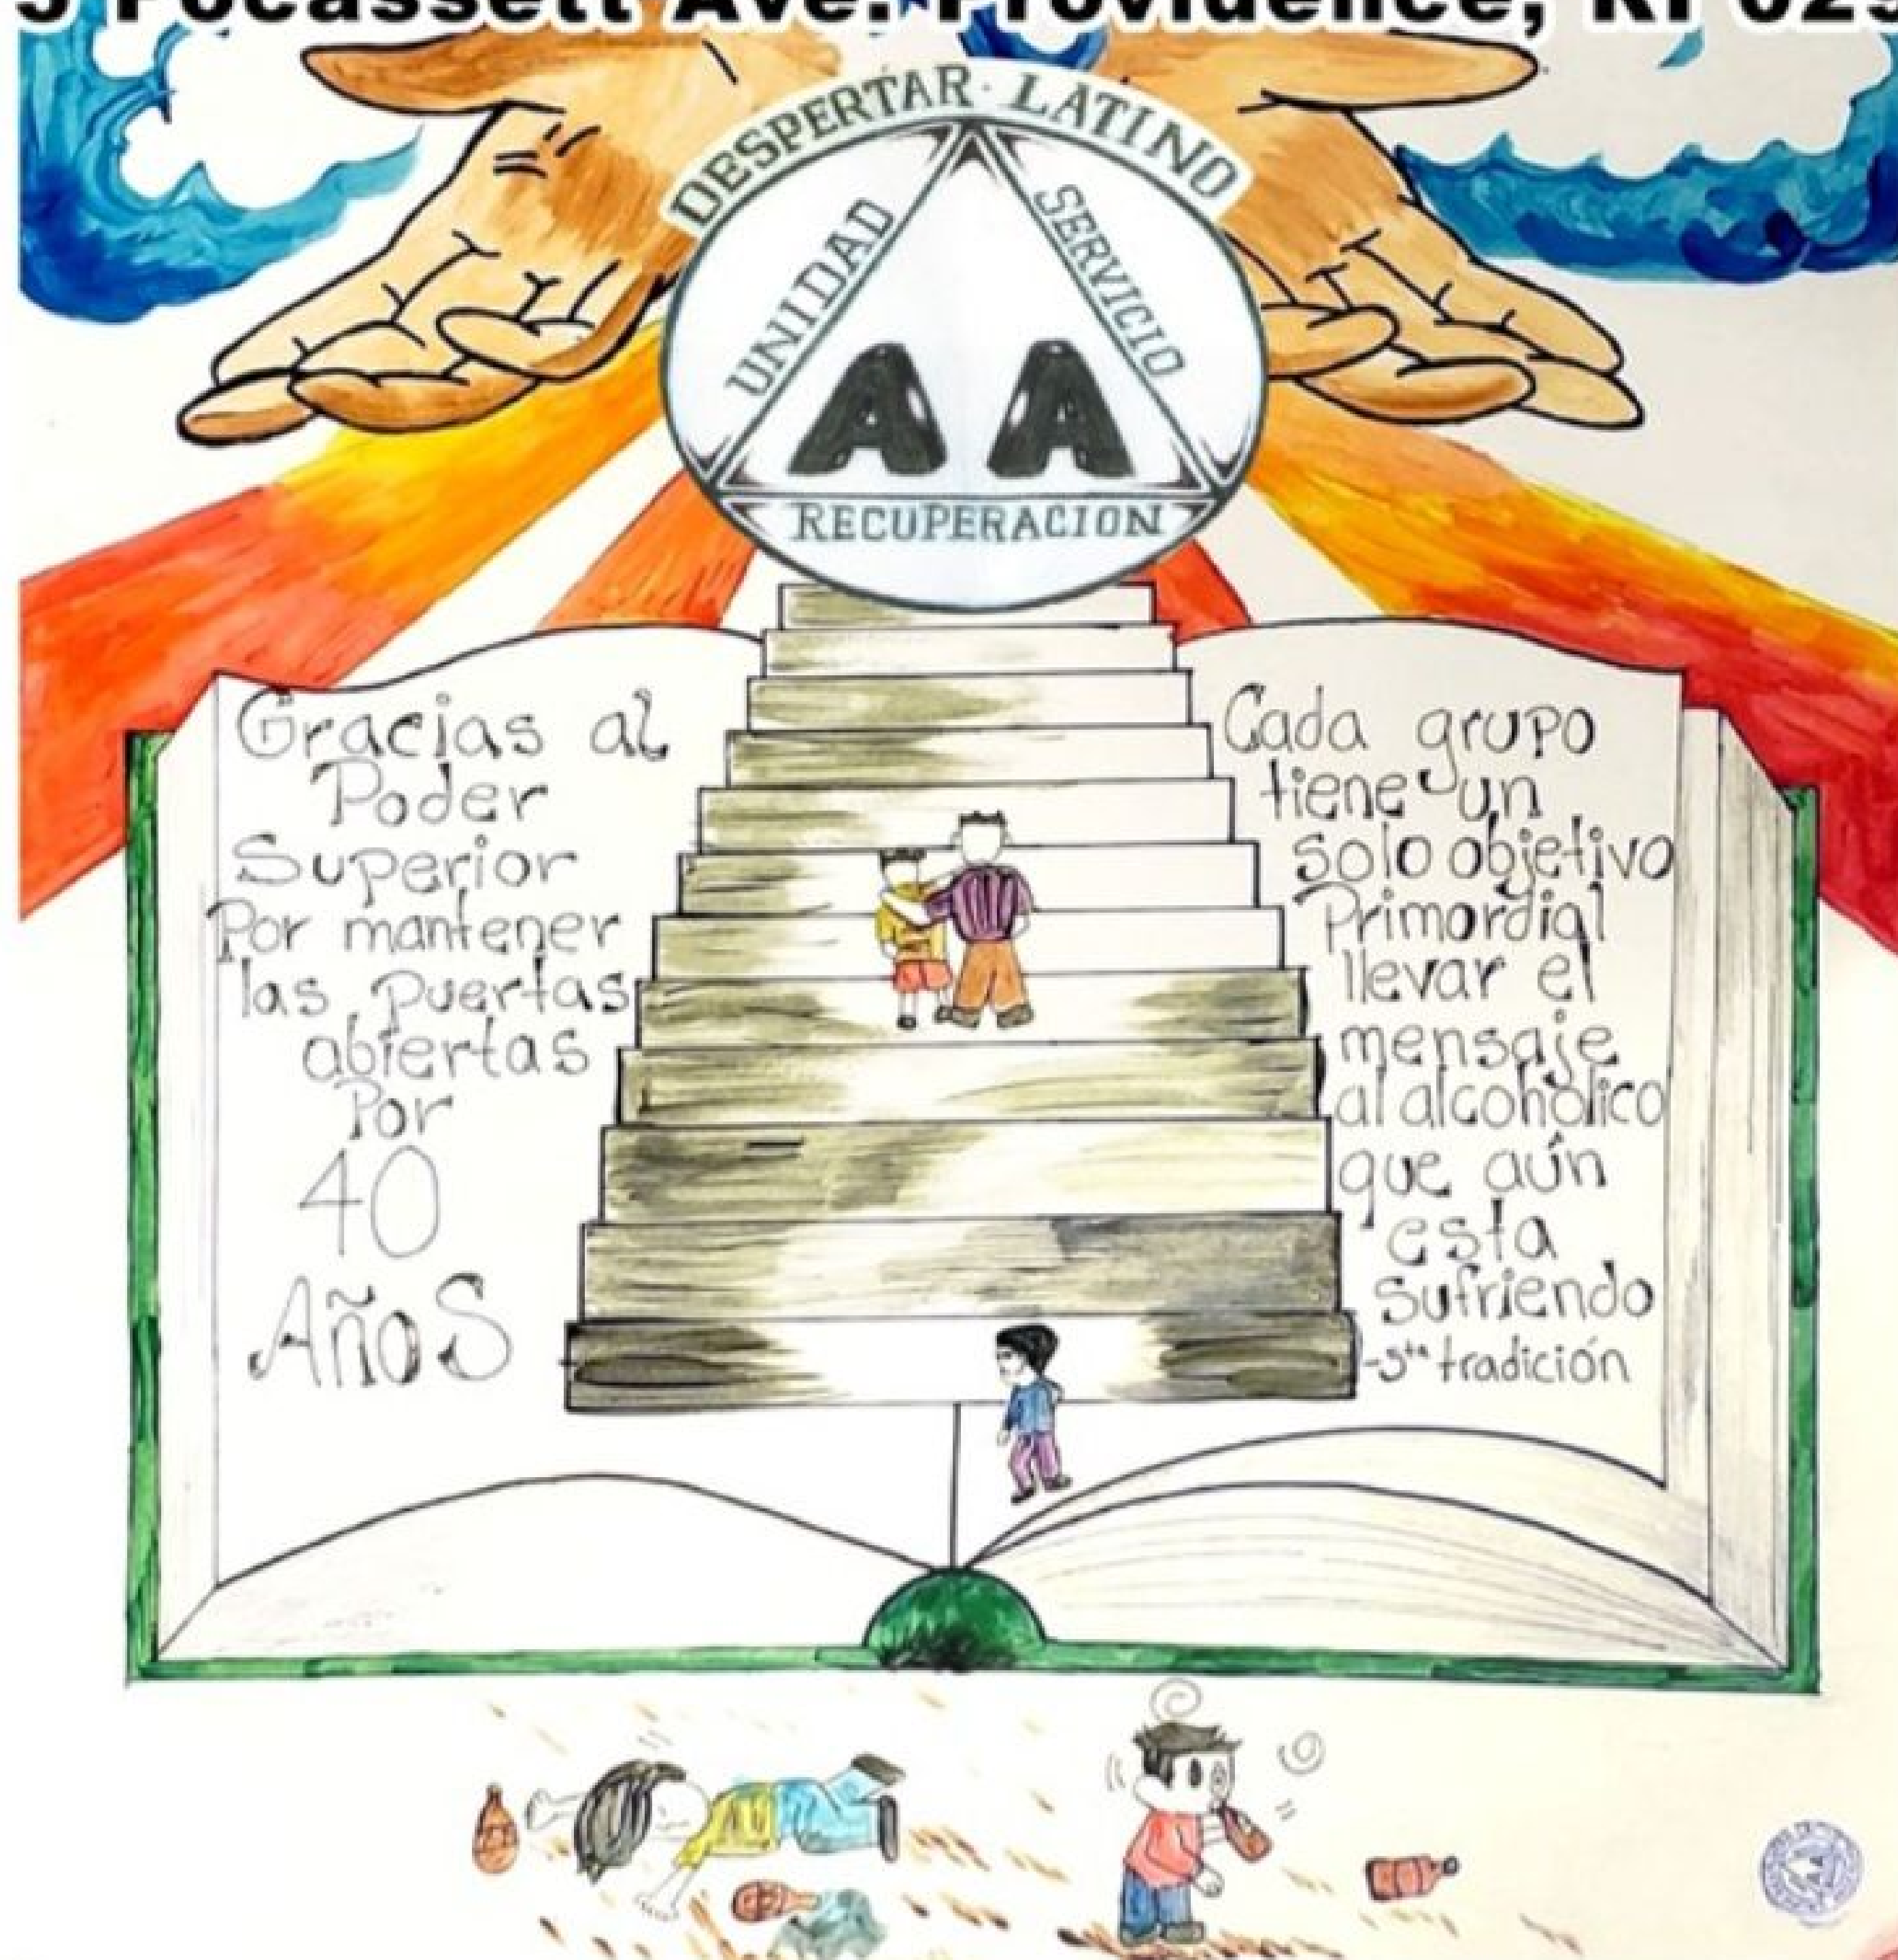 5 Pocassett Ave. Providence, RI 029
DESPERTAR · LATINO
UNIDAD
SERVICIO
A A
RECUPERACION
Gracias al
Poder
Superior
Por mantener
las puertas
abiertas
Por
40
AñoS
Cada grupo
tiene un
solo objetivo
Primordial
llevar el
mensaje
al alcohólico
que aún
esta
sufriendo
-5ta tradición